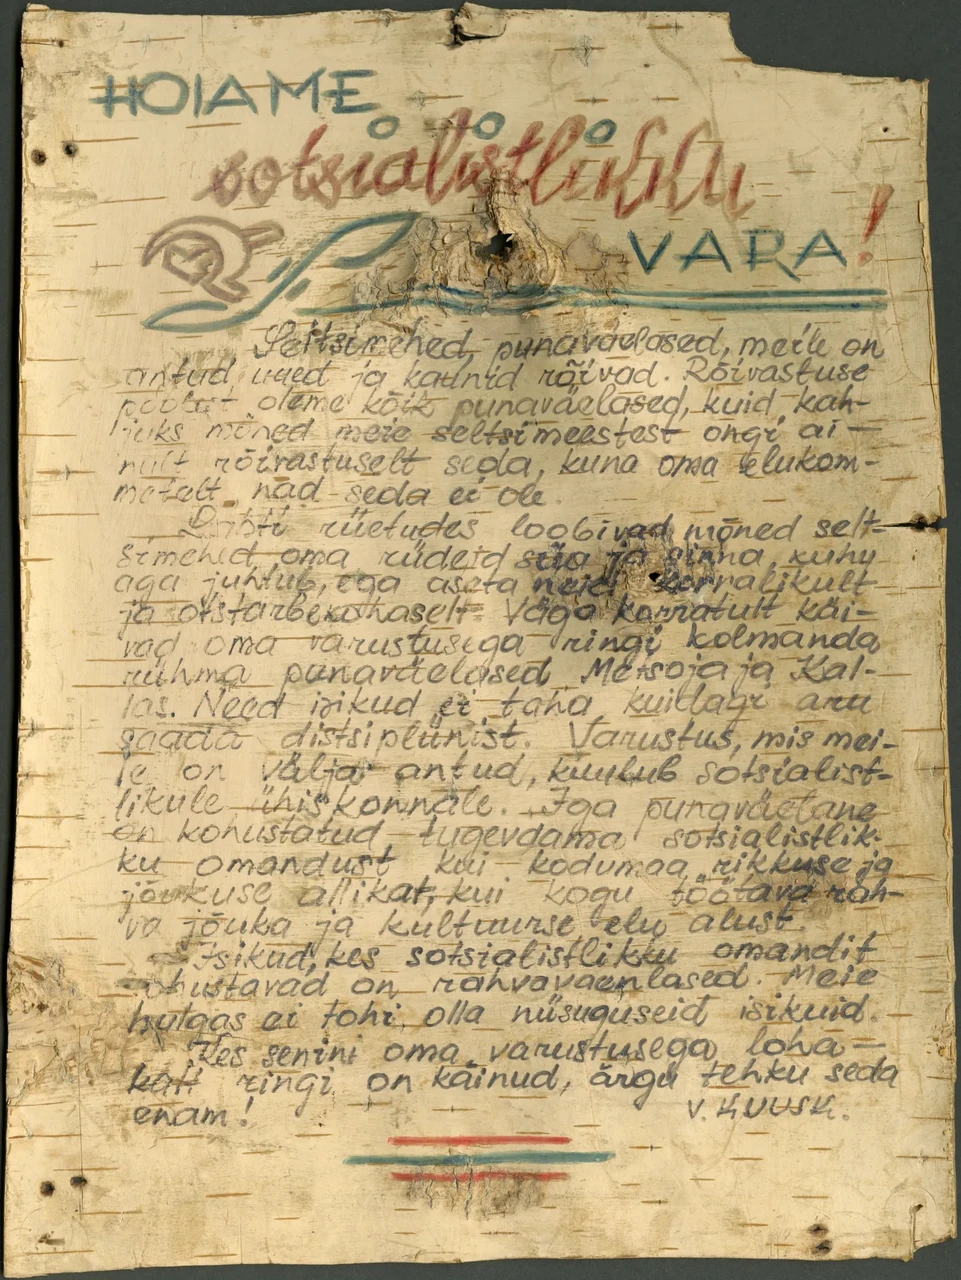 HOIAME
sotsialistlikku
VARA!
Seltsimehed, punaväelased, meile on
antud uued ja kaunid rõivad. Rõivastuse
poolest oleme kõik punaväelased, kuid kah-
juks mõned meie seltsimeestest ongi ai-
nult rõivastuselt seda, kuna oma elukom-
metelt nad seda ei ole.
riietudes loobivad mõned selt-
simehed oma riideid siia ja sinna, kuhu
aga juhtub, ega aseta neid korralikult
ja otstarbekohaselt. Väga korratult käi-
vad oma varustusega ringi kolmanda
rühma punaväelased Metsoja ja Kal-
las. Need isikud ei taha kuidagi aru
saada distsipliinist. Varustus, mis mei-
le on välja antud, kuulub sotsialist-
likule ühiskonnale. Iga punaväelane
on kohustatud tugevdama sotsialistlik-
ku omandust kui kodumaa rikkuse ja
jõukuse allikat, kui kogu töötava rah-
va jõuka ja kultuurse elu alust.
Isikud, kes sotsialistlikku omandit
ohustavad on rahvavaenlased. Meie
hulgas ei tohi olla niisuguseid isikuid.
Kes senini oma varustusega loha-
kalt ringi on käinud, ärgu tehku seda
enam! V. KUUSK.